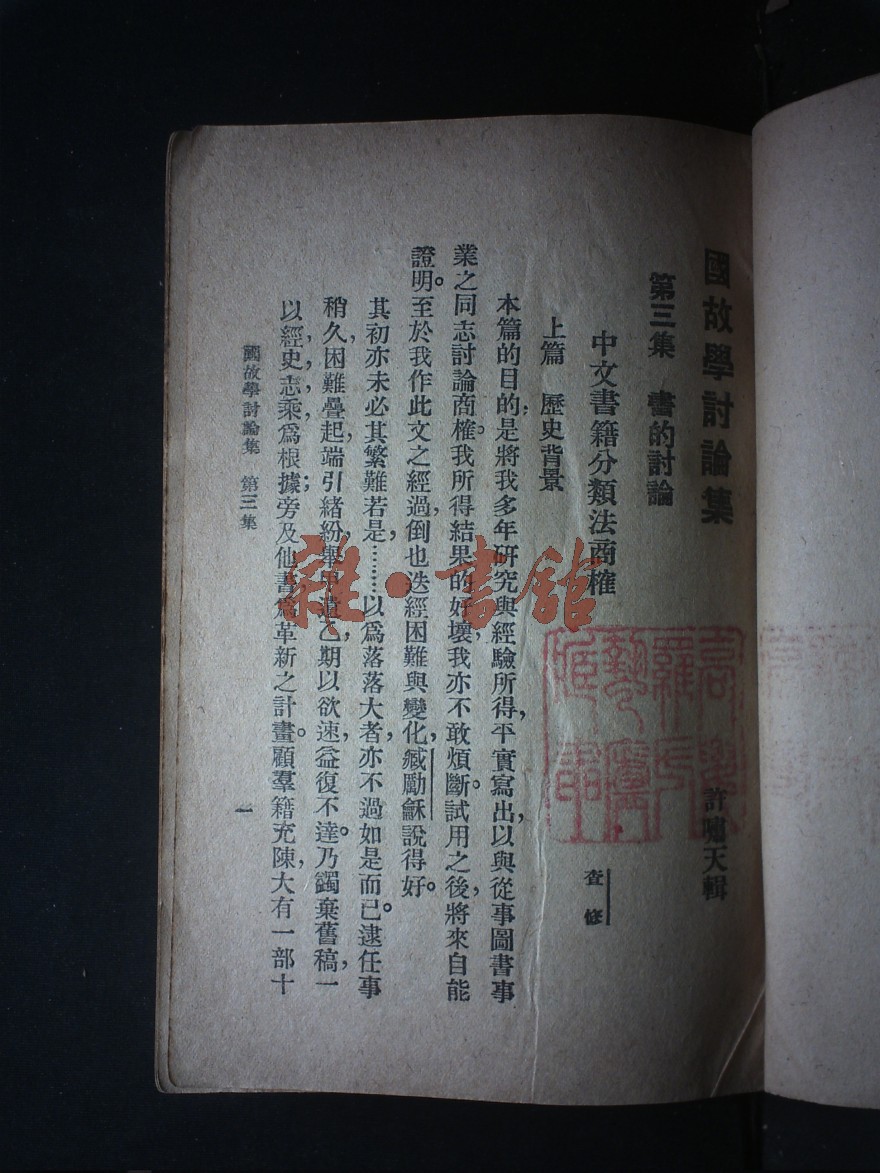 國故學討論集
許嘯天輯
第三集　書的討論
中文書籍分類法商榷
查修
上篇　歷史背景
本篇的目的,是將我多年研究與經驗所得,平實寫出,以與從事圖書事
業之同志討論商榷。我所得結果的好壞,我亦不敢煩斷。試用之後,將來自能
證明。至於我作此文之經過,倒也迭經困難與變化,臧勵龢說得好。
其初亦未必其繁難若是,………以為落落大者,亦不過如是而已。逮任事
稍久,困難疊起,端引緒紛,舉甲遺乙,期以欲速,益復不達。乃蠲棄舊稿,一
以經,史,志,乘,為根據;旁及他書,為革新之計畫。顧羣籍充陳,大有一部十
國故學討論集　第三集
一
雜·書館